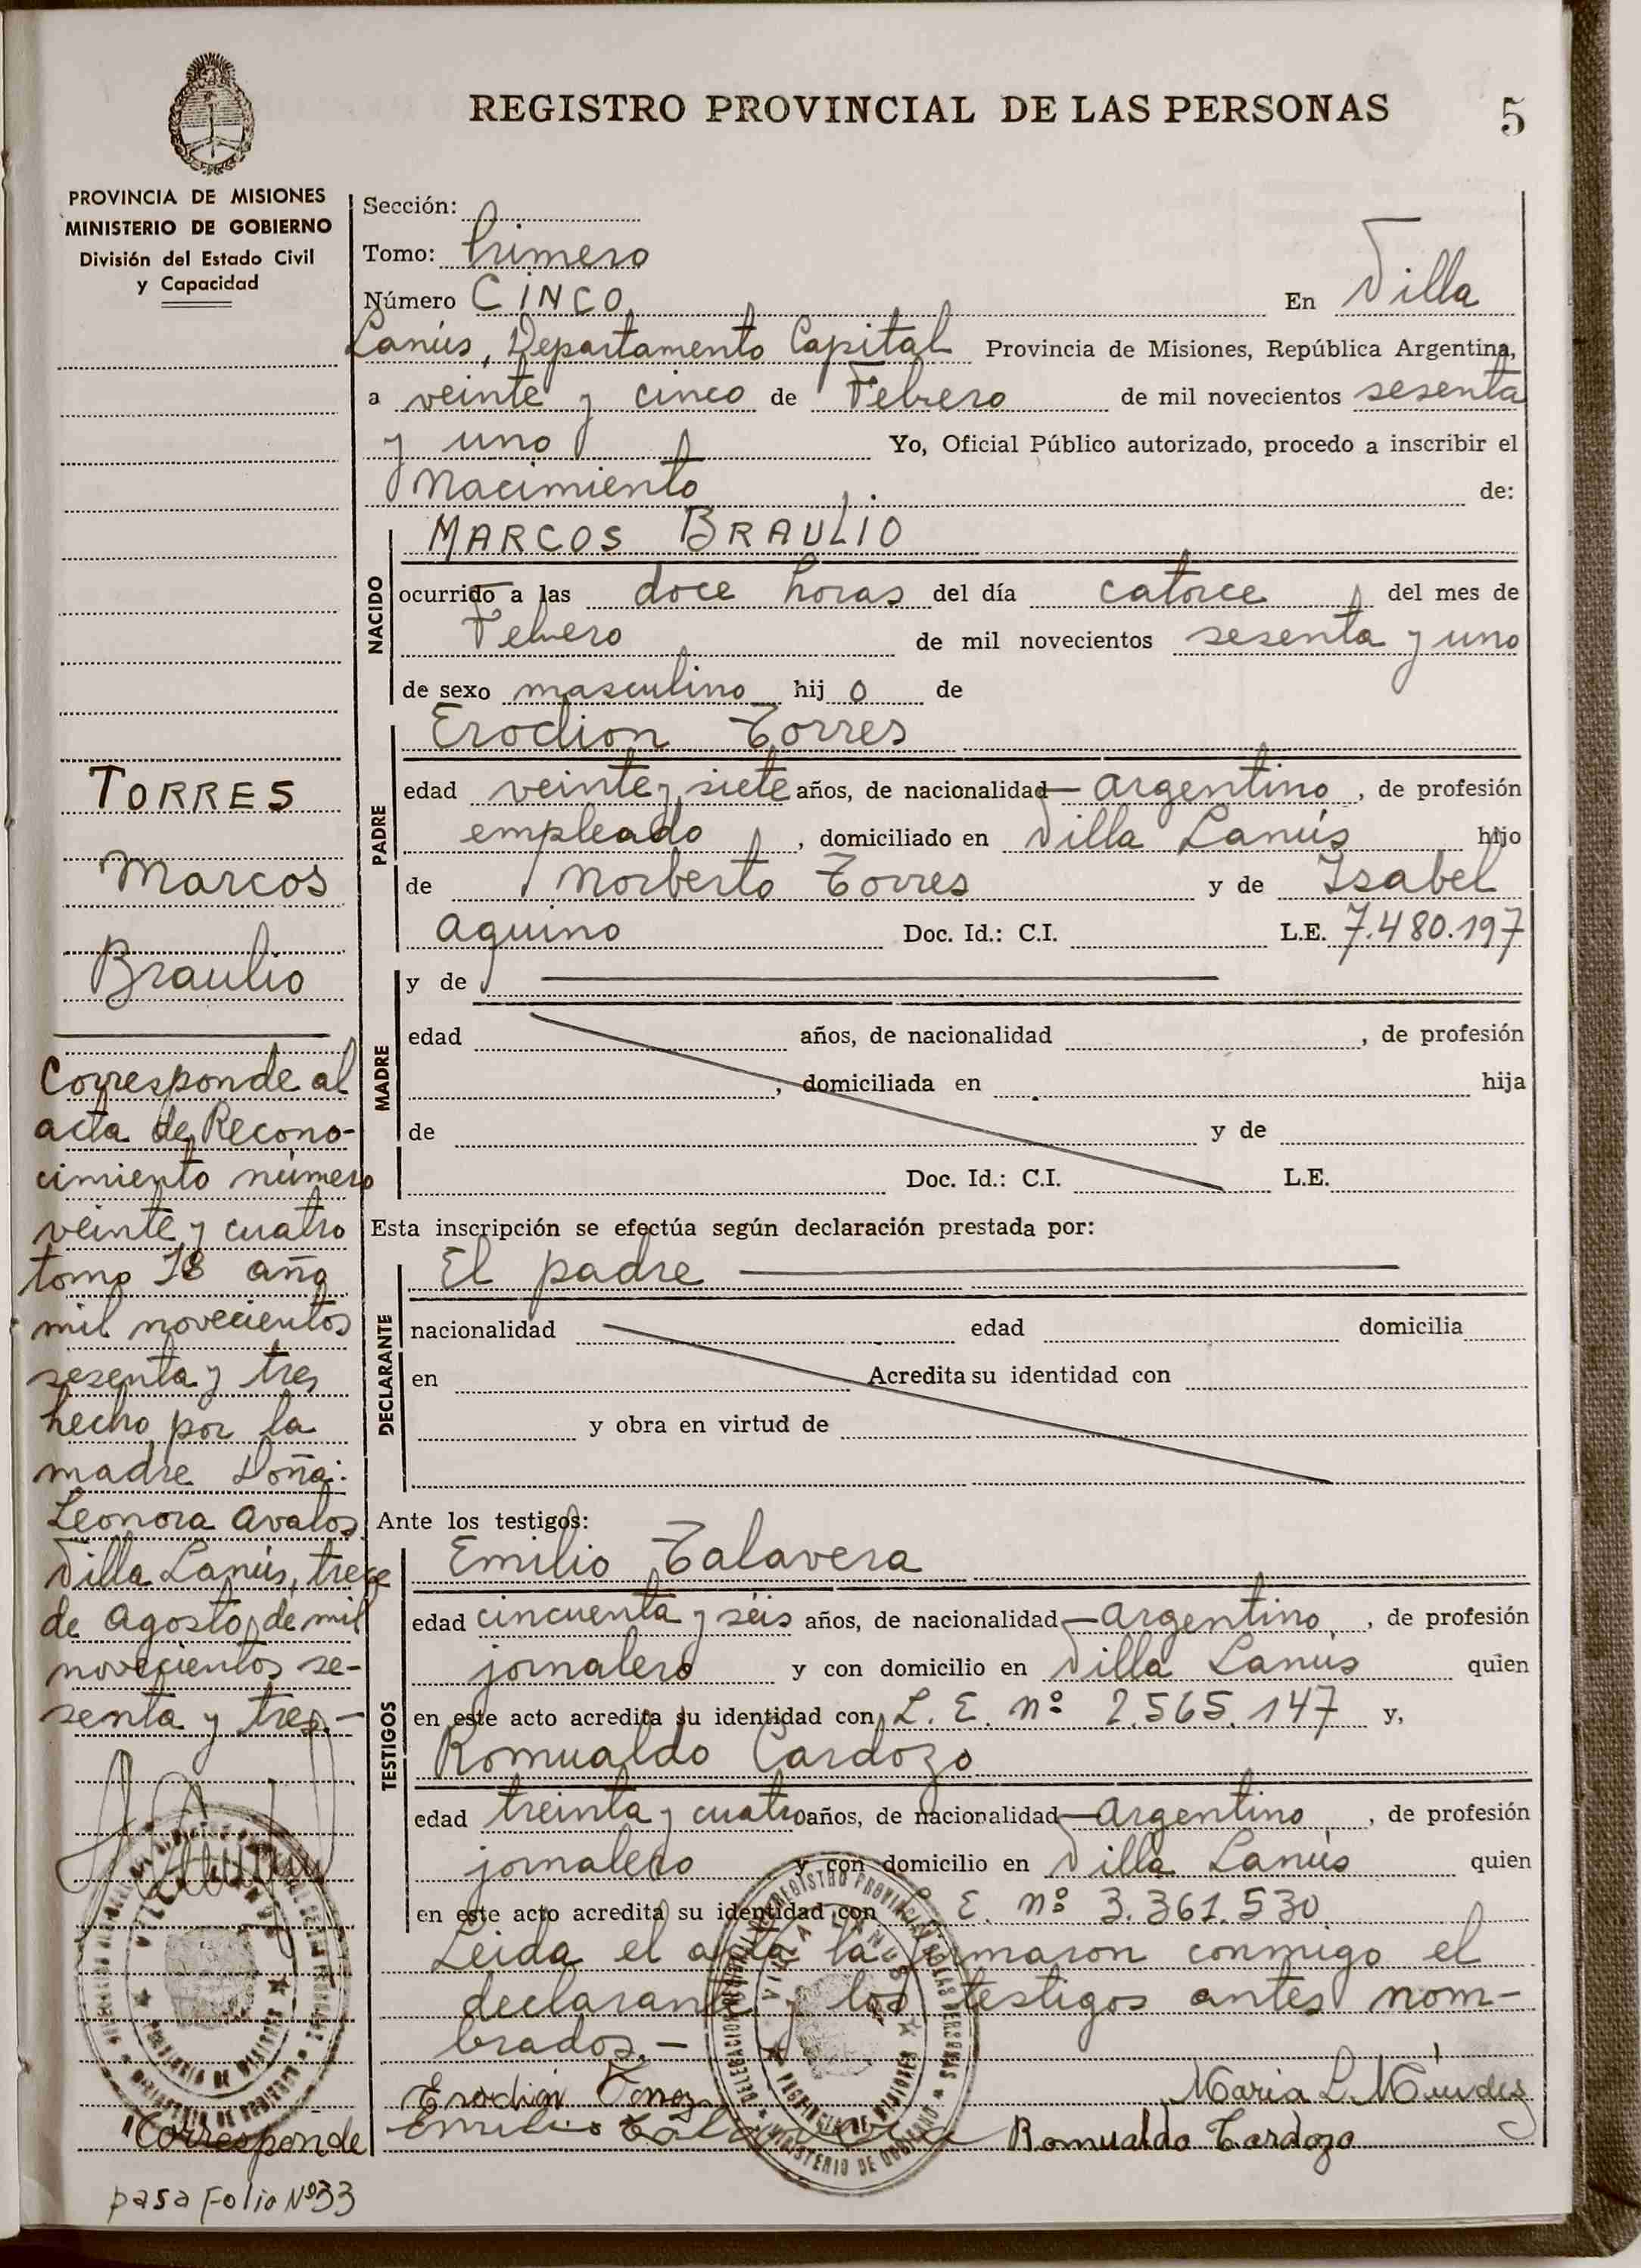 REGISTRO PROVINCIAL DE LAS PERSONAS
5
PROVINCIA DE MISIONES
MINISTERIO DE GOBIERNO
División del Estado Civil
y Capacidad
TORRES
Marcos
Braulio
Corresponde al
acta de Recono-
cimiento número
veinte y cuatro
tomo 1º año
mil novecientos
sesenta y tres
hecho por la
madre Doña:
Leonora Avalos
Villa Lanús, trece
de Agosto de mil
novecientos se-
senta y tres.-
"Corresponde
pasa Folio Nº33
Sección:
Tomo: Primero
Número CINCO En Villa
Lanús, Departamento Capital Provincia de Misiones, República Argentina,
a veinte y cinco de Febrero de mil novecientos sesenta
y uno Yo, Oficial Público autorizado, procedo a inscribir el
Nacimiento de:
NACIDO
MARCOS BRAULIO
ocurrido a las doce horas del día catorce del mes de
Febrero de mil novecientos sesenta y uno
de sexo masculino hijo de
PADRE
Erodion Torres
edad veinte y siete años, de nacionalidad argentino, de profesión
empleado, domiciliado en Villa Lanús hijo
de Norberto Torres y de Isabel
Aquino Doc. Id.: C.I. L.E. 7.480.197
MADRE
y de
edad años, de nacionalidad , de profesión
, domiciliada en hija
de y de
Doc. Id.: C.I. L.E.
Esta inscripción se efectúa según declaración prestada por:
DECLARANTE
El padre
nacionalidad edad domicilia
en Acredita su identidad con
y obra en virtud de
Ante los testigos:
TESTIGOS
Emilio Talavera
edad cincuenta y séis años, de nacionalidad argentino, de profesión
jornalero y con domicilio en Villa Lanús quien
en este acto acredita su identidad con L. E. nº 2.565.147 y,
Romualdo Cardozo
edad treinta y cuatro años, de nacionalidad Argentino, de profesión
jornalero y con domicilio en Villa Lanús quien
en este acto acredita su identidad con L. E. nº 3.361.530
Leida el acta la firmaron conmigo el
declarante y los testigos antes nom-
brados.-
Maria L. Méndez
Emilio Talavera
Romualdo Cardozo